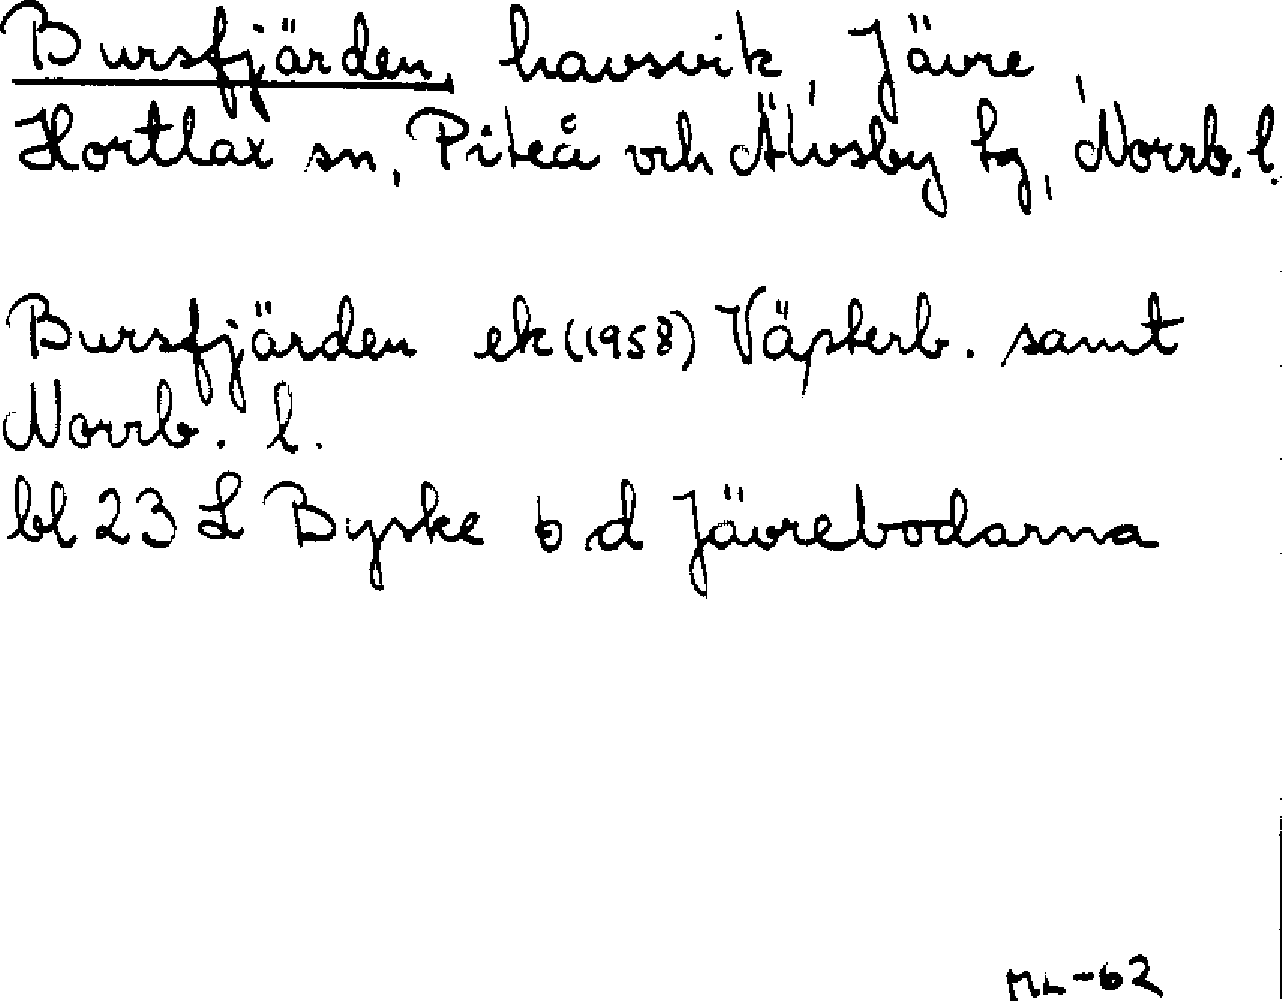 Bursfjärden, havsvik, Jävre,
Hortlax sn, Piteå och Älvsby tg, Norrb. l.
Bursfjärden ek (1958) Västerb. samt
Norrb. l.
bl 23 L Byske b d Jävrebodarna
ML-62